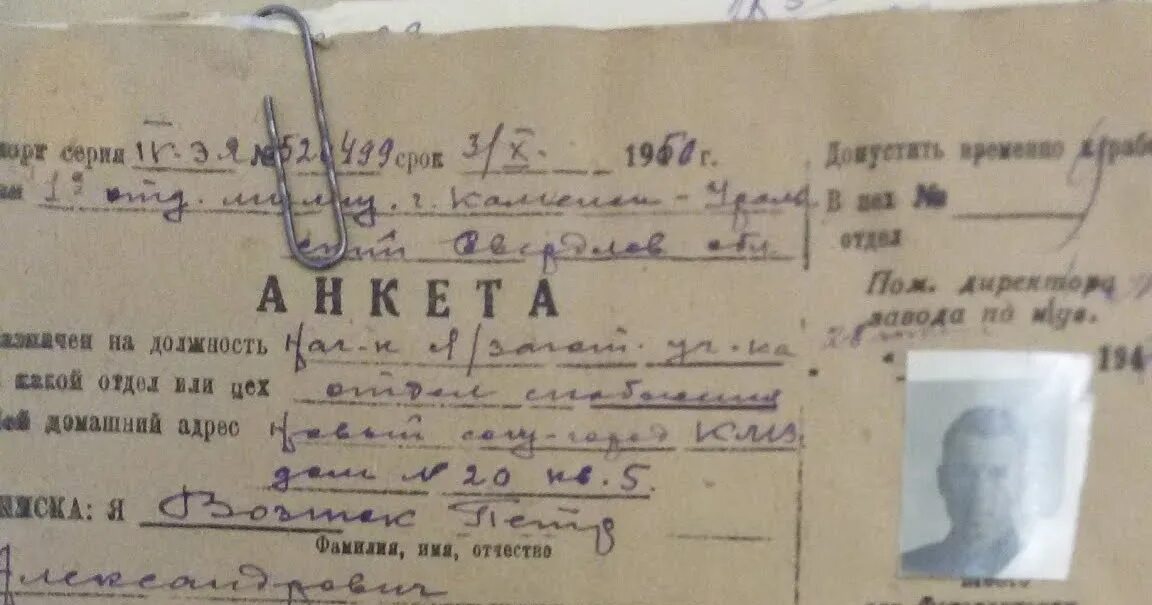 порт серия IV-ЭЯ № 520499 срок 3/X 1950 г.
1е отд. милиц. г. Каменск-Ураль
ский Свердлов обл.
АНКЕТА
азначен на должность Нач-к загот. уч-ка
какой отдел или цех отдел снабжения
ей домашний адрес Новый соц-город КМЗ
дом № 20 кв. 5.
ПИСКА: Я Возтек Петр
Фамилия, имя, отчество
Александрович
Допустить временно к рабо
В цех №
отдел
Пом. директора
завода по
194